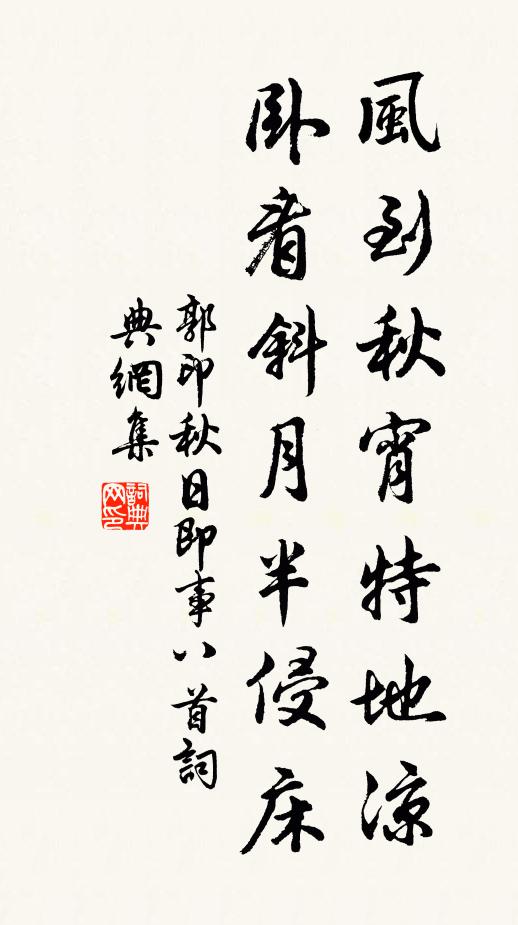 風到秋宵特地涼
卧看斜月半侵床
郭印秋日即事八首詞
典網集
詞典
网印